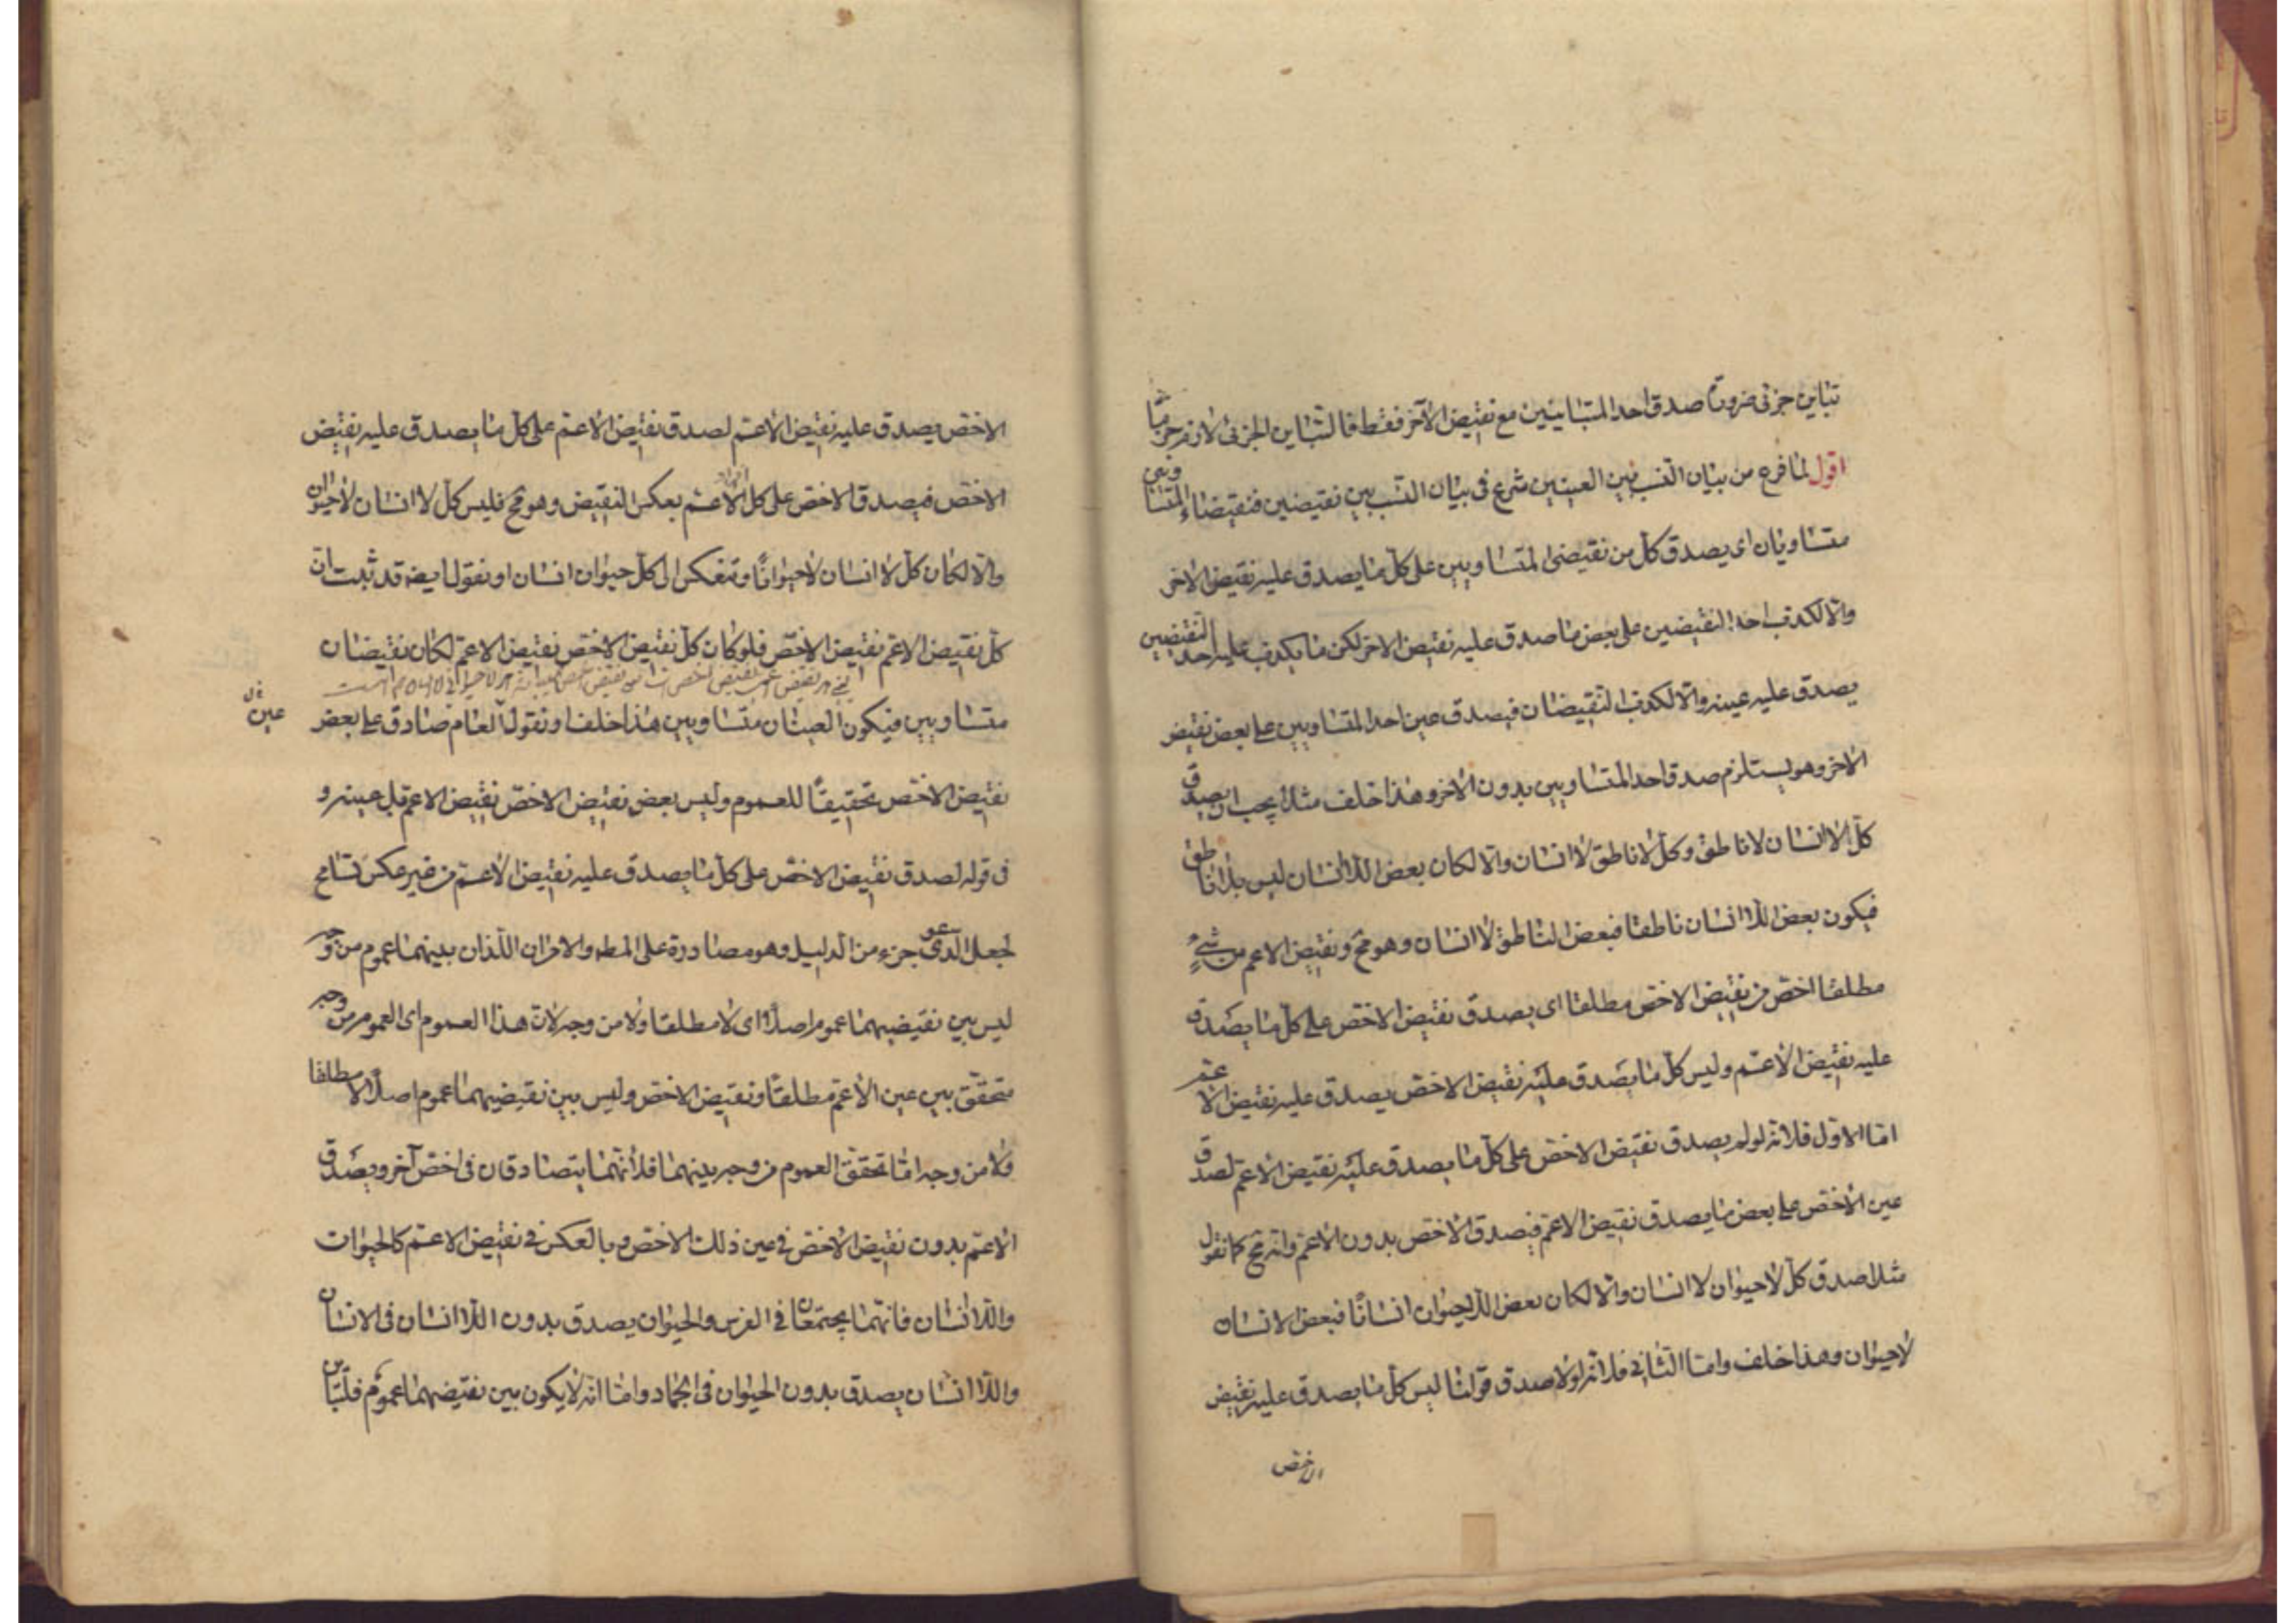 تباين جزئى ضرورة صدق احد المتباينين مع نقيض الآخر فقط فالتباين الجزئى لازم جزما
اقول لما فرغ من بيان النسب بين العينين شرع فى بيان النسب بين نقيضين فنقيضا المتساويين
متساويان اى يصدق كل من نقيضى المتساويين على كل ما يصدق عليه نقيض الاخر
والا لكذب احد النقيضين على بعض ما صدق عليه نقيض الاخر لكن ما يكذب عليه احد النقيضين
يصدق عليه عينه والا لكذب النقيضان فيصدق عين احد المتساويين على بعض نقيض
الاخر وهو يستلزم صدق احد المتساويين بدون الاخر وهذا خلف مثلا يجب ان يصدق
كل لا انسان لا ناطق وكل لا ناطق لا انسان والا لكان بعض اللا انسان ليس بلا ناطق
فيكون بعض اللا انسان ناطقا فبعض الناطق لا انسان وهو مح ونقيض الاعم من شئ
مطلقا اخص من نقيض الاخص مطلقا اى يصدق نقيض الاخص على كل ما يصدق
عليه نقيض الاعم وليس كل ما يصدق عليه نقيض الاخص يصدق عليه نقيض الاعم
اما الاول فلانه لو لم يصدق نقيض الاخص على كل ما يصدق عليه نقيض الاعم لصدق
عين الاخص على بعض ما يصدق نقيض الاعم فيصدق الاخص بدون الاعم وانه مح كما نقول
مثلا صدق كل لا حيوان لا انسان والا لكان بعض اللاحيوان انسانا فبعض الانسان
لا حيوان وهذا خلف واما الثانى فلانه لولا صدق قولنا ليس كل ما يصدق عليه نقيض
الاخص
الاخص يصدق عليه نقيض الاعم لصدق نقيض الاعم على كل ما يصدق عليه نقيض
الاخص فيصدق الاخص على كل الاعم بعكس النقيض وهو مح فليس كل لا انسان لا حيوان
والا لكان كل لا انسان لا حيوانا وتنعكس الى كل حيوان انسان او نقول ايضه قد ثبت ان
كل نقيض الاعم نقيض الاخص فلو كان كل نقيض الاخص نقيض الاعم لكان نقيضان
متساويين فيكون العينان متساويين هذا خلف او نقول العام صادق على بعض
عين
نقيض الاخص تحقيقا للعموم وليس بعض نقيض الاخص نقيض الاعم بل عينه و
فى قوله لصدق نقيض الاخص على كل ما يصدق عليه نقيض الاعم من غير عكس تسامح
لجعل الدعوى جزء من الدليل وهو مصادرة على المطه والامران اللذان بينهما عموم من وجه
ليس بين نقيضيهما عموم اصلا اى لا مطلقا ولا من وجه لان هذا العموم اى العموم من وجه
متحقق بين عين الاعم مطلقا ونقيض الاخص وليس بين نقيضيهما عموم اصلا لا مطلقا
ولا من وجه اما تحقق العموم من وجه بينهما فلانهما يتصادقان فى اخص آخر ويصدق
الاعم بدون نقيض الاخص فى عين ذلك الاخص وبالعكس فى نقيض الاعم كالحيوان
واللا انسان فانهما يجتمعان فى الفرس والحيوان يصدق بدون اللا انسان فى الانسان
واللا انسان يصدق بدون الحيوان فى الجماد واما انه لا يكون بين نقيضيهما عموم فللتباين